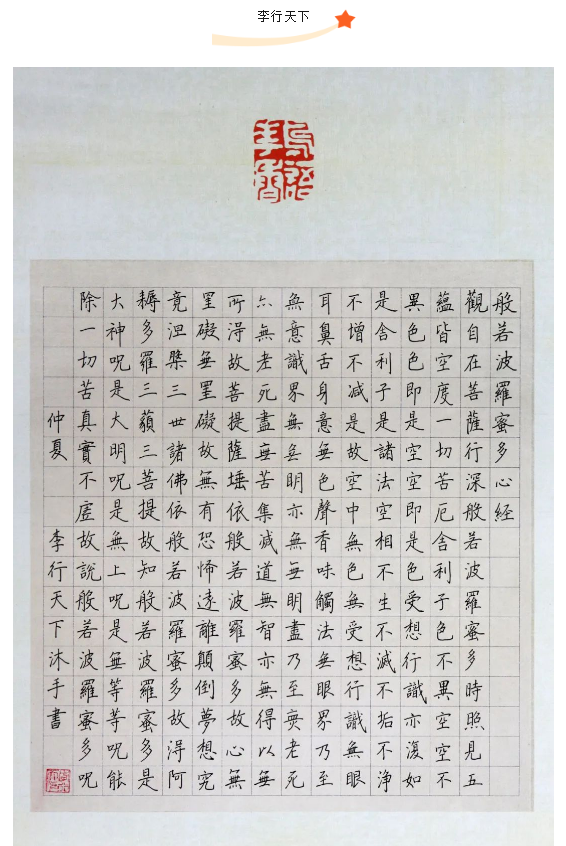 李行天下
般若波羅蜜多心経
觀自在菩薩行深般若波羅蜜多時照見五
蘊皆空度一切苦厄舍利子色不異空空不
異色色即是空空即是色受想行識亦復如
是舍利子是諸法空相不生不滅不垢不淨
不增不減是故空中無色無受想行識無眼
耳鼻舌身意無色聲香味觸法無眼界乃至
無意識界無無明亦無無明盡乃至無老死
亦無老死盡無苦集滅道無智亦無得以無
所得故菩提薩埵依般若波羅蜜多故心無
罣礙無罣礙故無有恐怖遠離顛倒夢想究
竟涅槃三世諸佛依般若波羅蜜多故得阿
耨多羅三藐三菩提故知般若波羅蜜多是
大神呪是大明呪是無上呪是無等等呪能
除一切苦真實不虛故說般若波羅蜜多呪
仲夏 李行天下沐手書